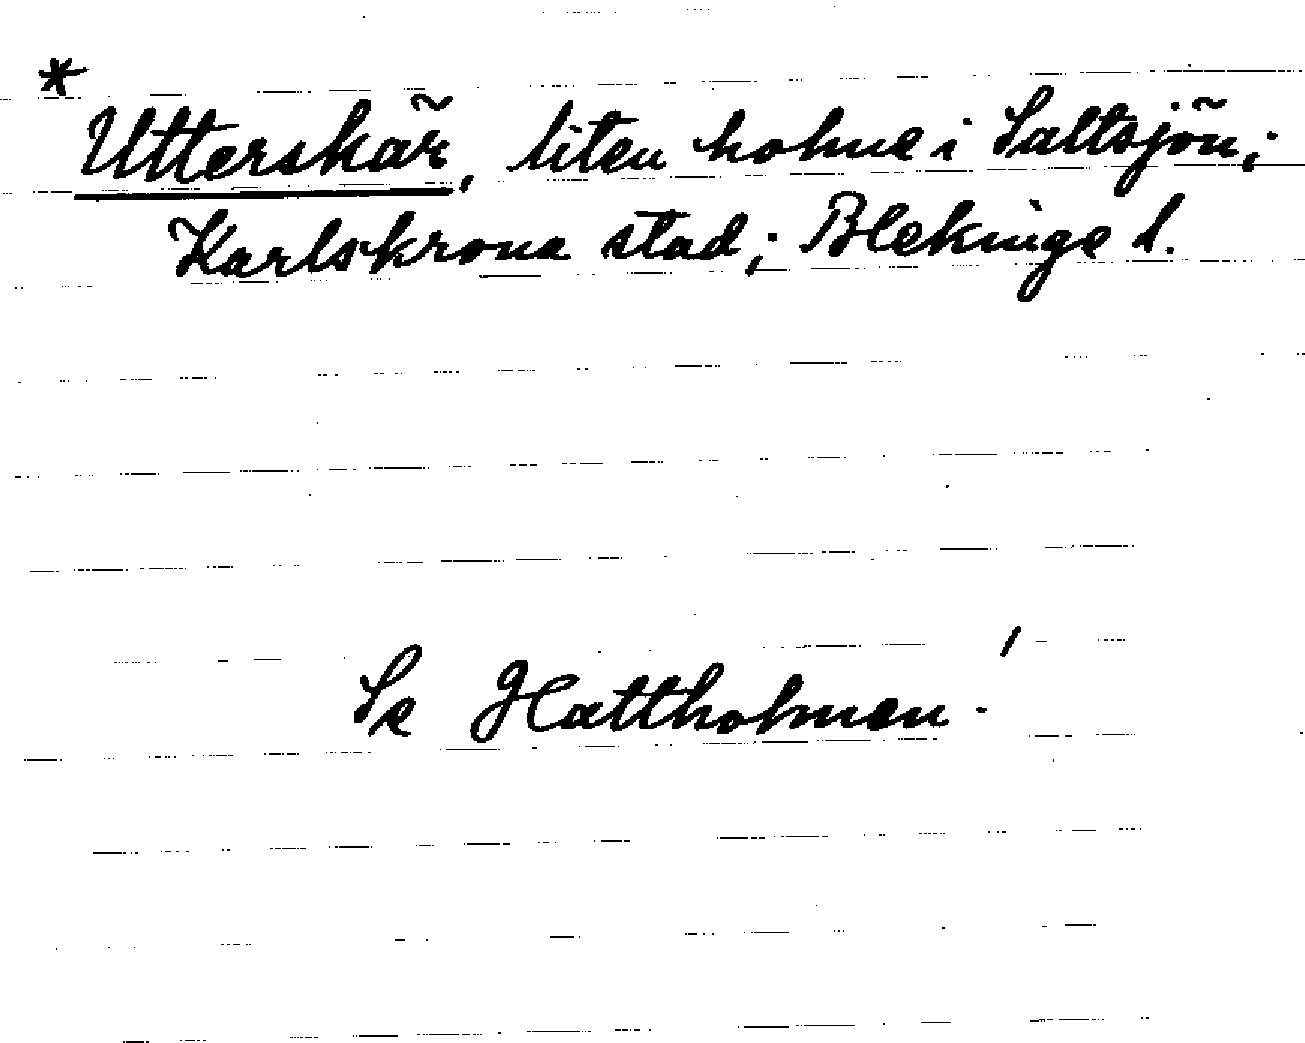 * Utterskär, liten holme i Saltsjön;
Karlskrona stad; Blekinge l.
Se Hattholmen!